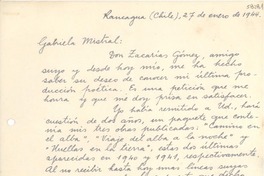 Rancagua (Chile), 27 de enero de 1944.
Gabriela Mistral:
Don Zacarías Gómez, amigo
suyo y desde hoy mío, me ha hecho
saber su deseo de conocer mi última pro-
ducción poética. Es una petición que me
honra y que me doy prisa en satisfacer.
Yo había remitido a Ud., hará
cuestión de dos años, un paquete que conte-
nía mis tres obras publicadas: "Camino en
el alba", "Viaje del alba a la noche" y
"Huellas en la tierra", estas dos últimas
aparecidas en 1940 y 1941, respectivamente.
Al no recibir hasta hoy unas líneas suyas